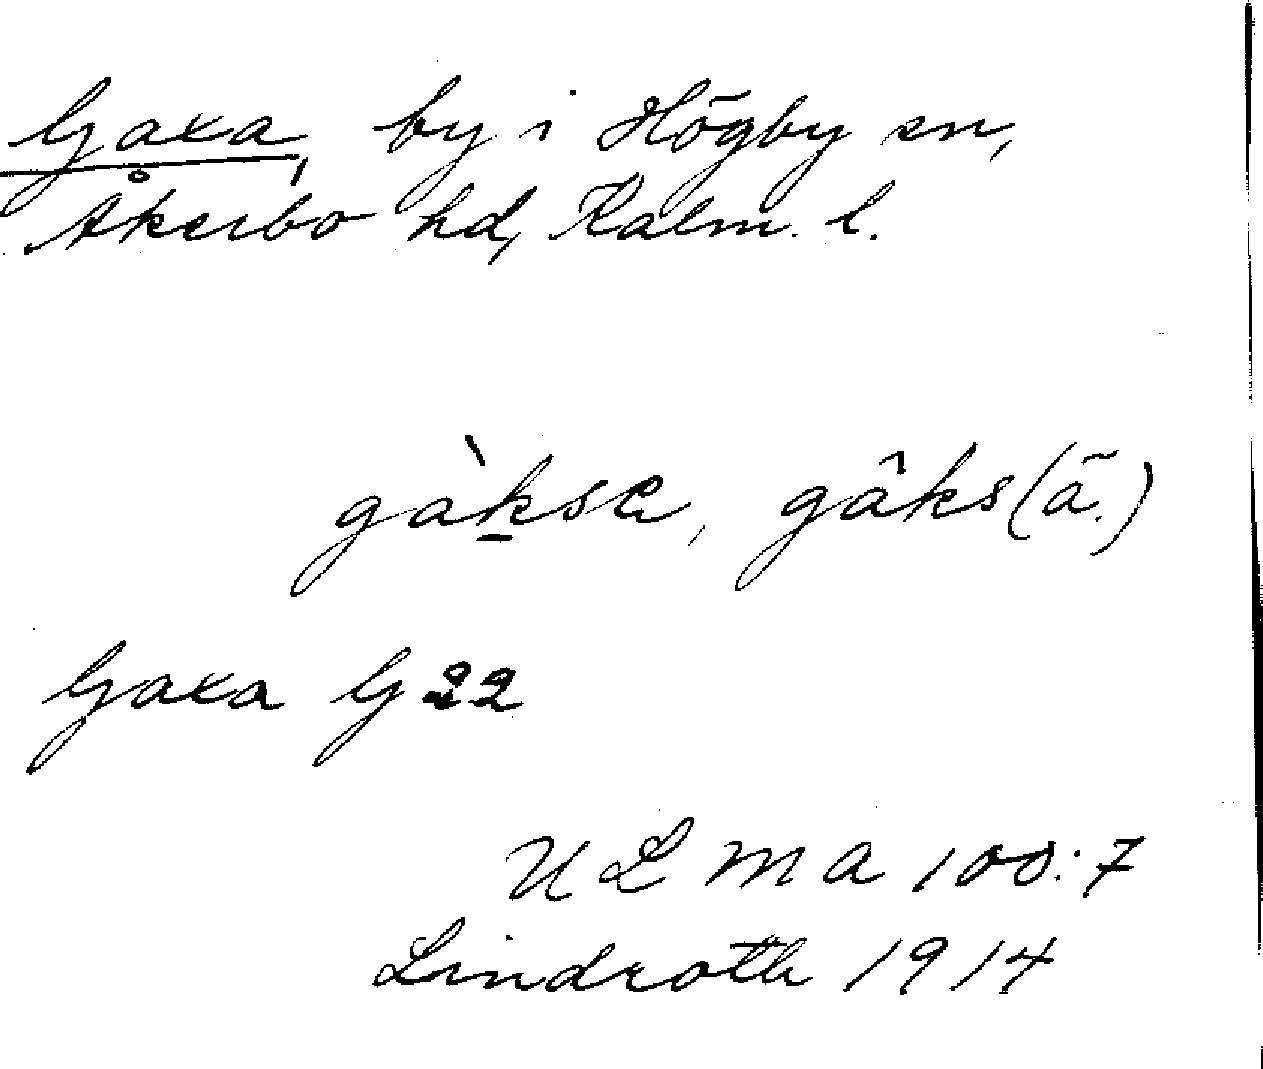 Gaxa, by i Högby sn,
Åkerbo hd, Kalm. l.
gàksa, gâks(ä.)
Gaxa G 22
ULMA 100:7
Lindroth 1914